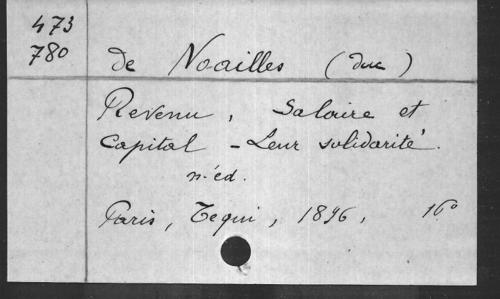 473
780
de Noailles (duc)
Revenu, Salaire et
Capital - Leur solidarité.
n. éd.
Paris, Tequi, 1896, 16°